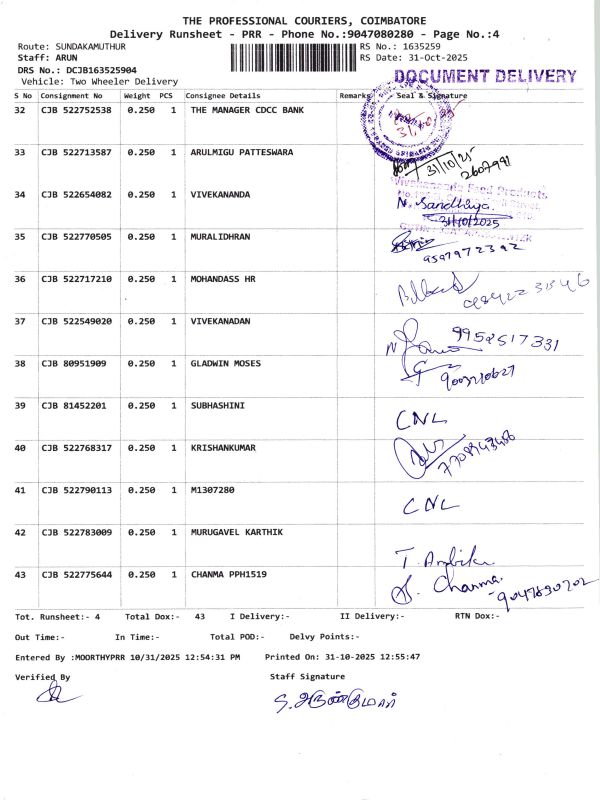 THE PROFESSIONAL COURIERS, COIMBATORE
Delivery Runsheet - PRR - Phone No.:9047080280 - Page No.:4
Route: SUNDAKAMUTHUR RS No.: 1635259
Staff: ARUN RS Date: 31-Oct-2025
DRS No.: DCJB163525904
Vehicle: Two Wheeler Delivery
DOCUMENT DELIVERY
S No Consignment No Weight PCS Consignee Details Remarks Seal & Signature
32 CJB 522752538 0.250 1 THE MANAGER CDCC BANK
33 CJB 522713587 0.250 1 ARULMIGU PATTESWARA
31/10/25
2607991
34 CJB 522654082 0.250 1 VIVEKANANDA
Vivekananda Food Products
N. Sandhiya
31/10/2025
35 CJB 522770505 0.250 1 MURALIDHRAN
9597972392
36 CJB 522717210 0.250 1 MOHANDASS HR
37 CJB 522549020 0.250 1 VIVEKANADAN
9952517331
38 CJB 80951909 0.250 1 GLADWIN MOSES
39 CJB 81452201 0.250 1 SUBHASHINI
CNL
40 CJB 522768317 0.250 1 KRISHANKUMAR
41 CJB 522790113 0.250 1 M1307280
CNL
42 CJB 522783009 0.250 1 MURUGAVEL KARTHIK
T. Ambika
43 CJB 522775644 0.250 1 CHANMA PPH1519
Chanma
Tot. Runsheet:- 4 Total Dox:- 43 I Delivery:- II Delivery:- RTN Dox:-
Out Time:- In Time:- Total POD:- Delvy Points:-
Entered By :MOORTHYPRR 10/31/2025 12:54:31 PM Printed On: 31-10-2025 12:55:47
Verified By Staff Signature
S. அருண்குமார்